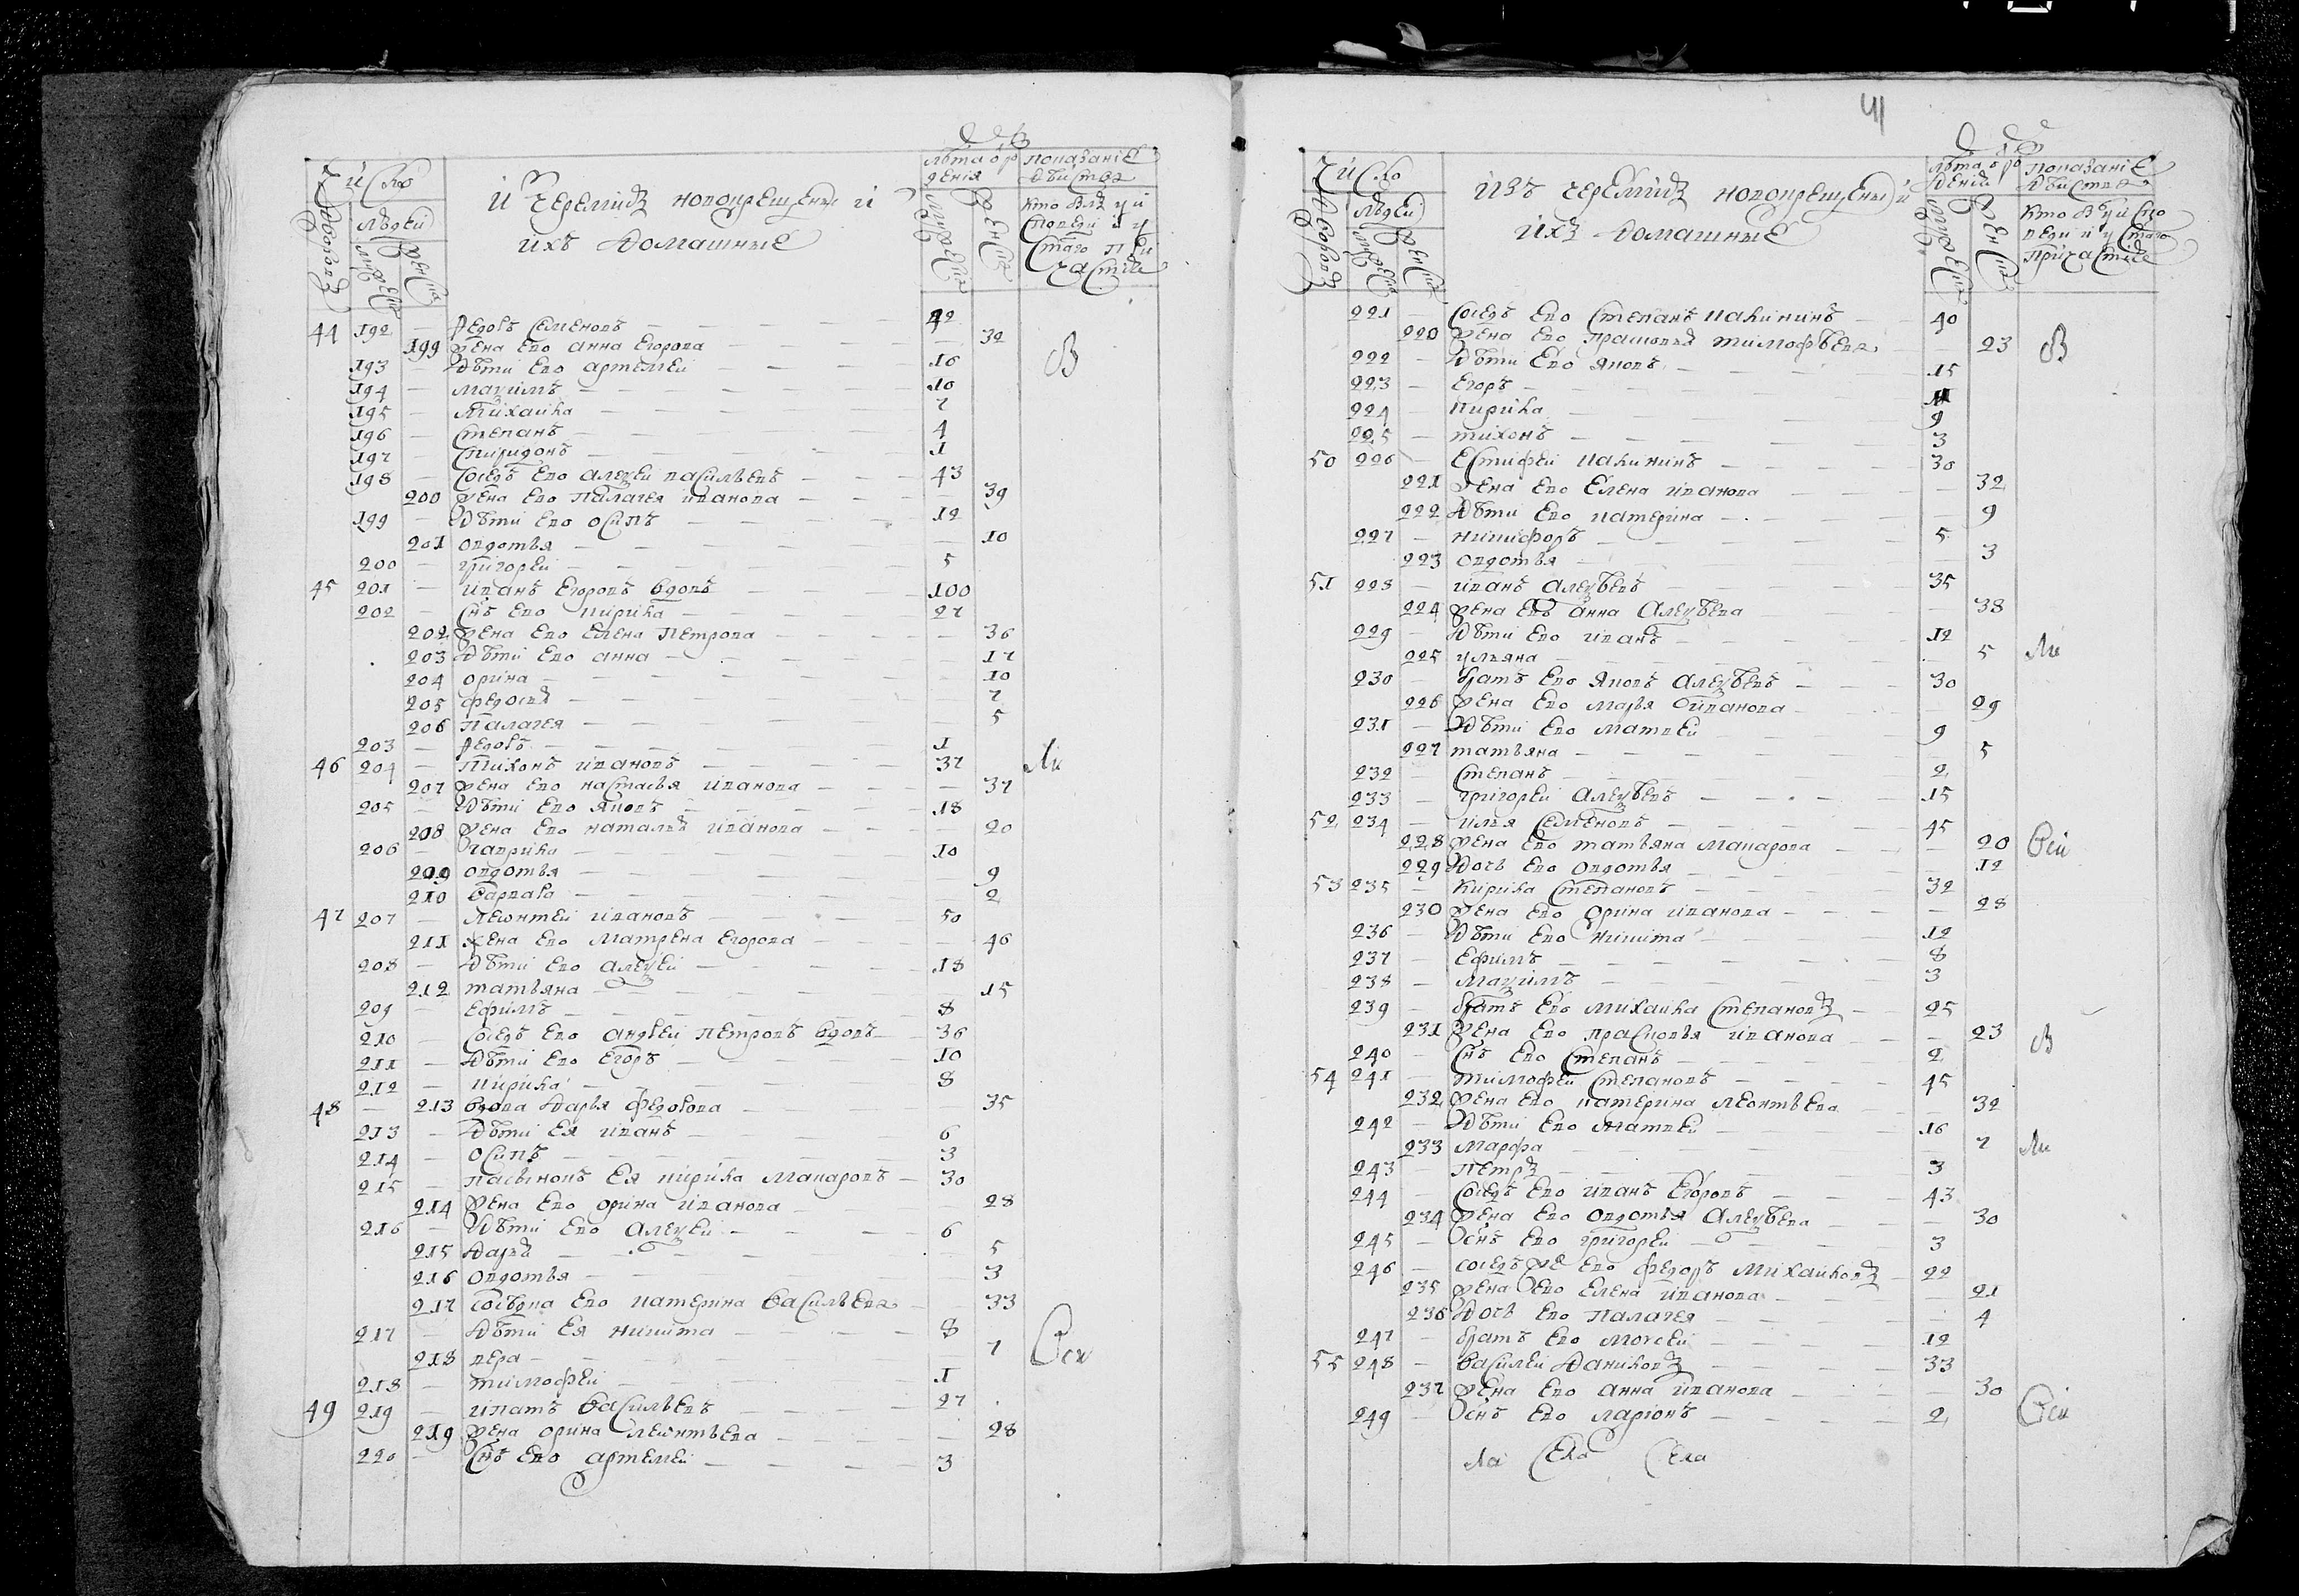 Число
дворовъ
людей
мужеска
женска
И черемисъ новокрещены и
ихъ домашные
лѣта рождения
мужеска
женска
показаніе
действа
кто былъ у и
споведи и у с
таго при
частия
44 192 — Ѳедоръ Семеновъ — 42
199 жена ево Анна Егорова — 32 В
193 — дѣти ево Артемей — 16
194 — Маѯимъ — 10
195 — Михаила — 7
196 — Степанъ — 4
197 — Спиридонъ — 1
198 — Соседъ ево Алеѯей Васильевъ — 43
200 жена ево Палагея Иванова — 39
199 — дѣти ево Осипъ — 12
201 Овдотья — 10
200 — Григорей — 5
45 201 — Иванъ Егоровъ вдовъ — 100
202 — Снъ ево Кирила — 27
202 жена ево Елена Петрова — 36
203 дѣти ево Анна — 17
204 Орина — 10
205 Федосья — 7
206 Палагея — 5
203 — Ѳедоръ — 1
46 204 — Тихонъ Ивановъ — 37 Ли
207 жена ево Настасья Иванова — 37
205 — дѣти ево Яковъ — 18
208 жена ево Наталья Иванова — 20
206 — Гаврила — 10
209 Овдотья — 9
210 Варвара — 2
47 207 — Леонтей Ивановъ — 50
211 жена ево Матрена Егорова — 46
208 — дѣти ево Алеѯей — 18
212 Татьяна — 15
209 — Ефимъ — 8
210 — Соседъ ево Андрей Петровъ вдовъ — 36
211 — дѣти ево Егоръ — 10
212 — Кирила — 8
48 — 213 вдова Дарья Федорова — 35
213 — дѣти ея Иванъ — 6
214 — Осипъ — 3
215 — пасынокъ ея Кирила Макаровъ — 30
214 жена ево Орина Иванова — 28
216 — дѣти ево Алеѯей — 6
215 Дарья — 5
216 Овдотья — 3
217 соседка ево Катерина Васильева — 33
217 — дѣти ея Никита — 8
218 Вера — 7 Оси
218 — Тимофей — 1
49 219 — Игнатъ Васильевъ — 27
219 жена Орина Леонтьева — 28
220 — Снъ ево Артемей — 3
41
Число
дворовъ
людей
мужеска
женска
Изъ черемисъ новокрещены и
ихъ домашные
лѣта рождений
мужеска
женска
показание
действа
кто былъ у испо
веди и у стаго
причастия
221 — Соседъ ево Степанъ Калининъ — 40
220 жена ево Прасковья Тимофѣева — 23 В
222 — дѣти ево Яковъ — 15
223 — Егоръ — 11
224 — Кирила — 9
225 — Тихонъ — 3
50 226 — Естифей Калининъ — 30
221 жена ево Елена Иванова — 32
222 дѣти ево Катерина — 9
227 — Никифоръ — 5
223 Овдотья — 3
51 228 — Иванъ Алеѯѣевъ — 35
224 жена ево Анна Алеѯѣева — 38
229 — дѣти ево Иванъ — 12
225 Ульяна — 5 Ли
230 — братъ ево Яковъ Алеѯѣевъ — 30
226 жена ево Марья Иванова — 29
231 — дѣти ево Матвей — 9
227 Татьяна — 5
232 — Степанъ — 2
233 — Григорей Алеѯѣевъ — 15
52 234 — Илья Семеновъ — 45
228 жена ево Татьяна Макарова — 20 Оси
229 дочь ево Овдотья — 12
53 235 — Кирила Степановъ — 32
230 жена ево Орина Иванова — 28
236 — дѣти ево Никита — 12
237 — Ефимъ — 8
238 — Маѯимъ — 3
239 — братъ ево Михаила Степановъ — 25
231 жена ево Прасковья Иванова — 23 В
240 — Снъ ево Степанъ — 2
54 241 — Тимофей Степановъ — 45
232 жена ево Катерина Леонтьева — 32
242 — дѣти ево Матвей — 16
233 Марфа — 7 Ли
243 — Петръ — 3
244 — Соседъ ево Иванъ Егоровъ — 43
234 жена ево Овдотья Алеѯѣева — 30
245 — снъ ево Григорей — 3
246 — соседъ же ево Федоръ Михайловъ — 22
235 жена ево Елена Иванова — 21
236 дочь ево Палагея — 4
247 — братъ ево Моисей — 12
55 248 — Василей Даниловъ — 33
237 жена ево Анна Иванова — 30
249 — снъ ево Ларионъ — 2 Оси
села